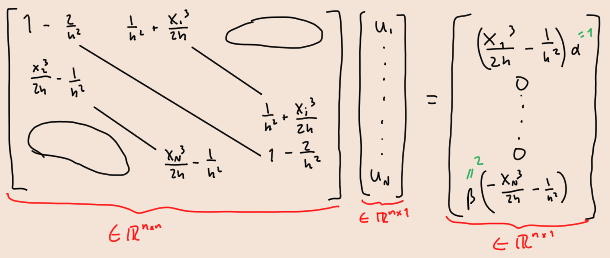 1 - 2/h² 1/h² + x₁³/2h
x₂³/2h - 1/h²
1/h² + xᵢ³/2h
x_N³/2h - 1/h² 1 - 2/h²
u₁
⋮
u_N
=
(x₁³/2h - 1/h²) α =1
0
⋮
0
2
=
β (-x_N³/2h - 1/h²)
∈ ℝⁿˣⁿ
∈ ℝⁿˣ¹
∈ ℝⁿˣ¹